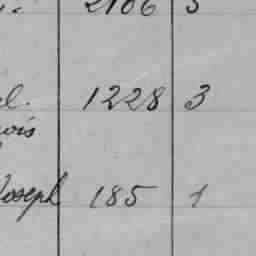 2106
l. 1228 3
ois
Joseph 185 1